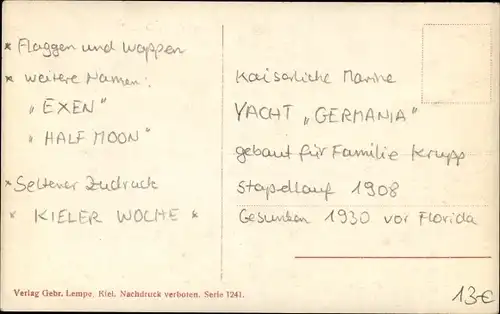 * Flaggen und Wappen
* weitere Namen:
„EXEN"
„HALF MOON"
* Seltener Zudruck
* KIELER WOCHE *
Kaiserliche Marine
YACHT „GERMANIA"
gebaut für Familie Krupp
Stapellauf 1908
Gesunken 1930 vor Florida
Verlag Gebr. Lempe, Kiel. Nachdruck verboten. Serie 1241.
13€